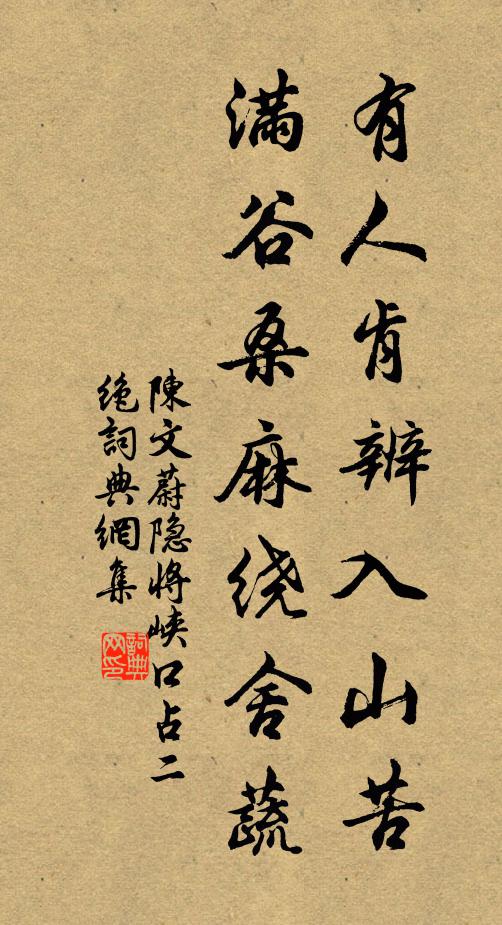 有人肯辨入山苦
满谷桑麻绕舍蔬
陳文蔚隐将峡口占二
絶詞典網集
詞典网印